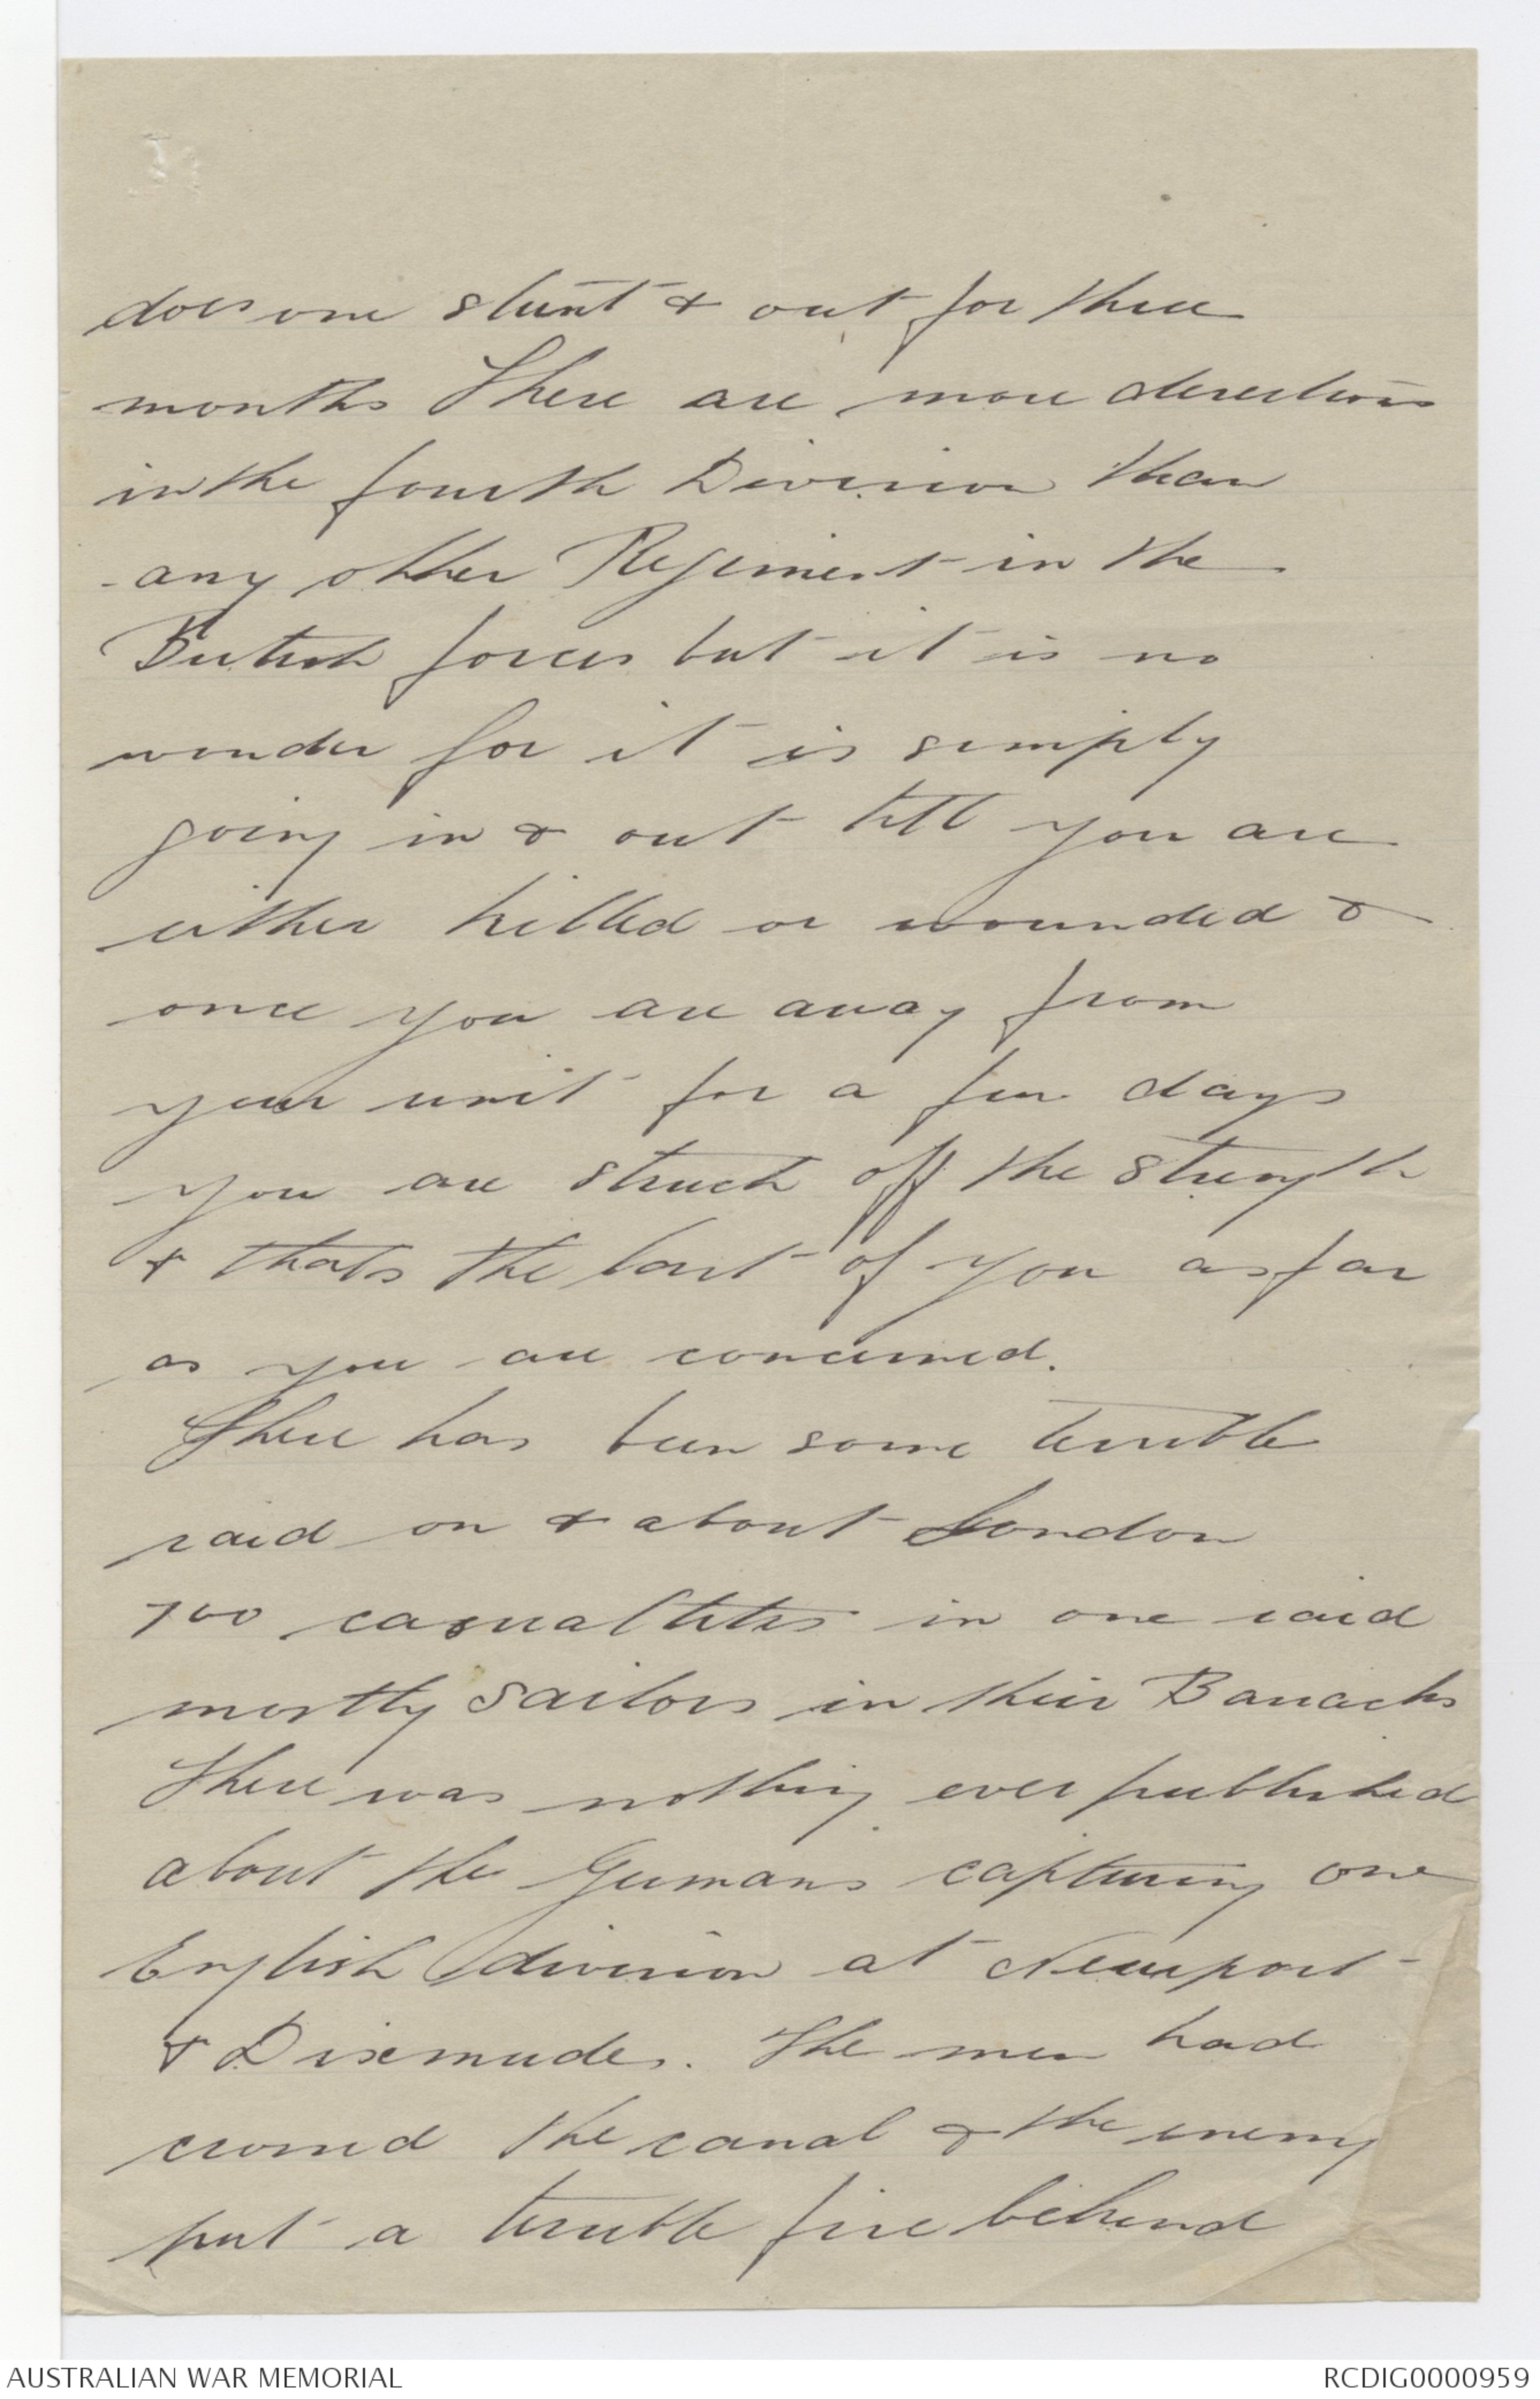 does one stunt & out for three
months There are more desertions
in the fourth Division than
any other Regiment in the
British forces but it is no
wonder for it is simply
going in & out till you are
either killed or wounded &
once you are away from
your unit for a few days
you are struck off the strength
& thats the last of you as far
as you are concerned.
There has been some terrible
raid on & about London
700 casualtites in one raid
mostly sailors in their Barracks
There was nothing ever published
about the Germans capturing one
English division at Newport
& Dixmude. The men had
crossed the canal & the enemy
put a terrible fire behind
AUSTRALIAN WAR MEMORIAL
RCDIG0000959